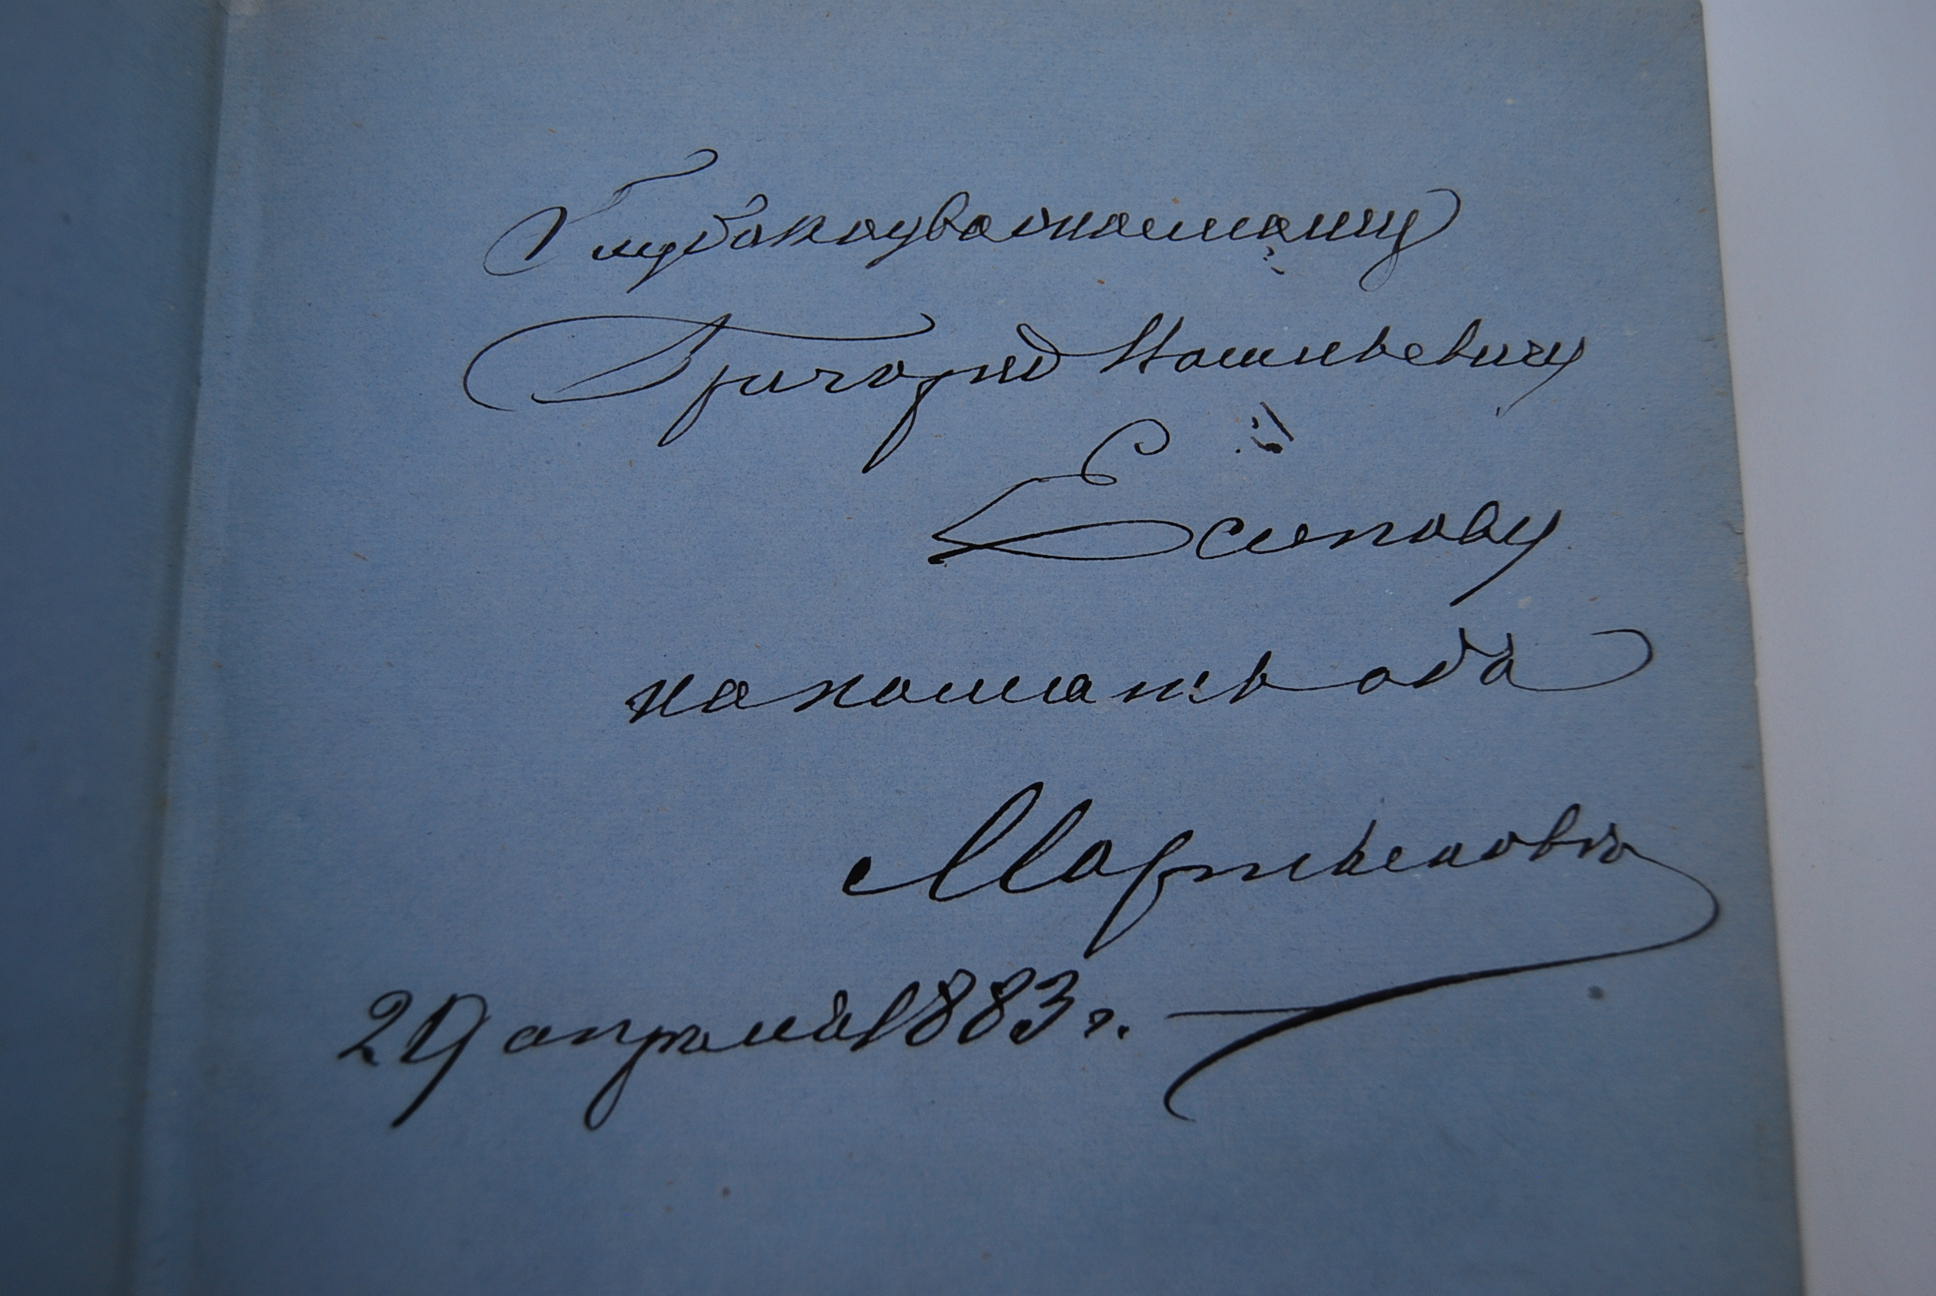 Глубокоуважаемому
Григорию Васильевичу
Есипову
на память отъ
Мартьянова
29 апреля 1883 г.